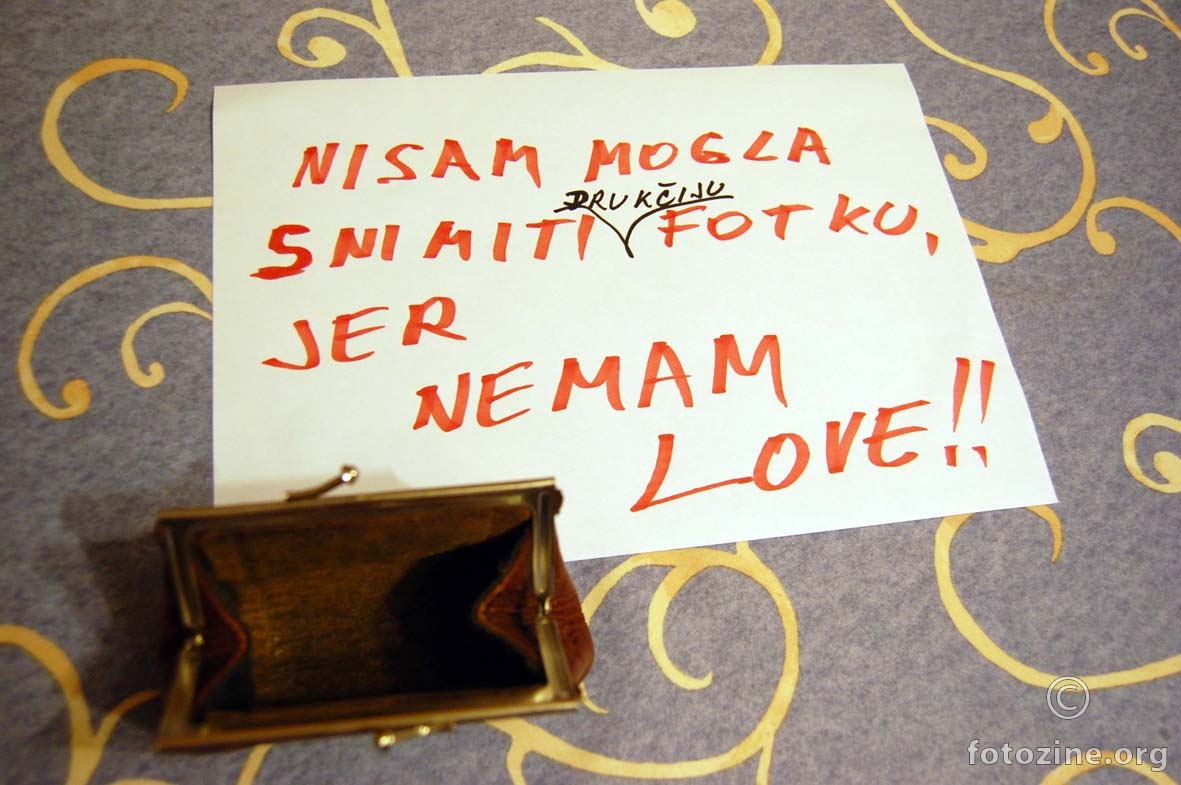 NISAM MOGLA
DRUKČIJU
SNIMITI FOTKU,
JER
NEMAM
LOVE!!
©
fotozine.org